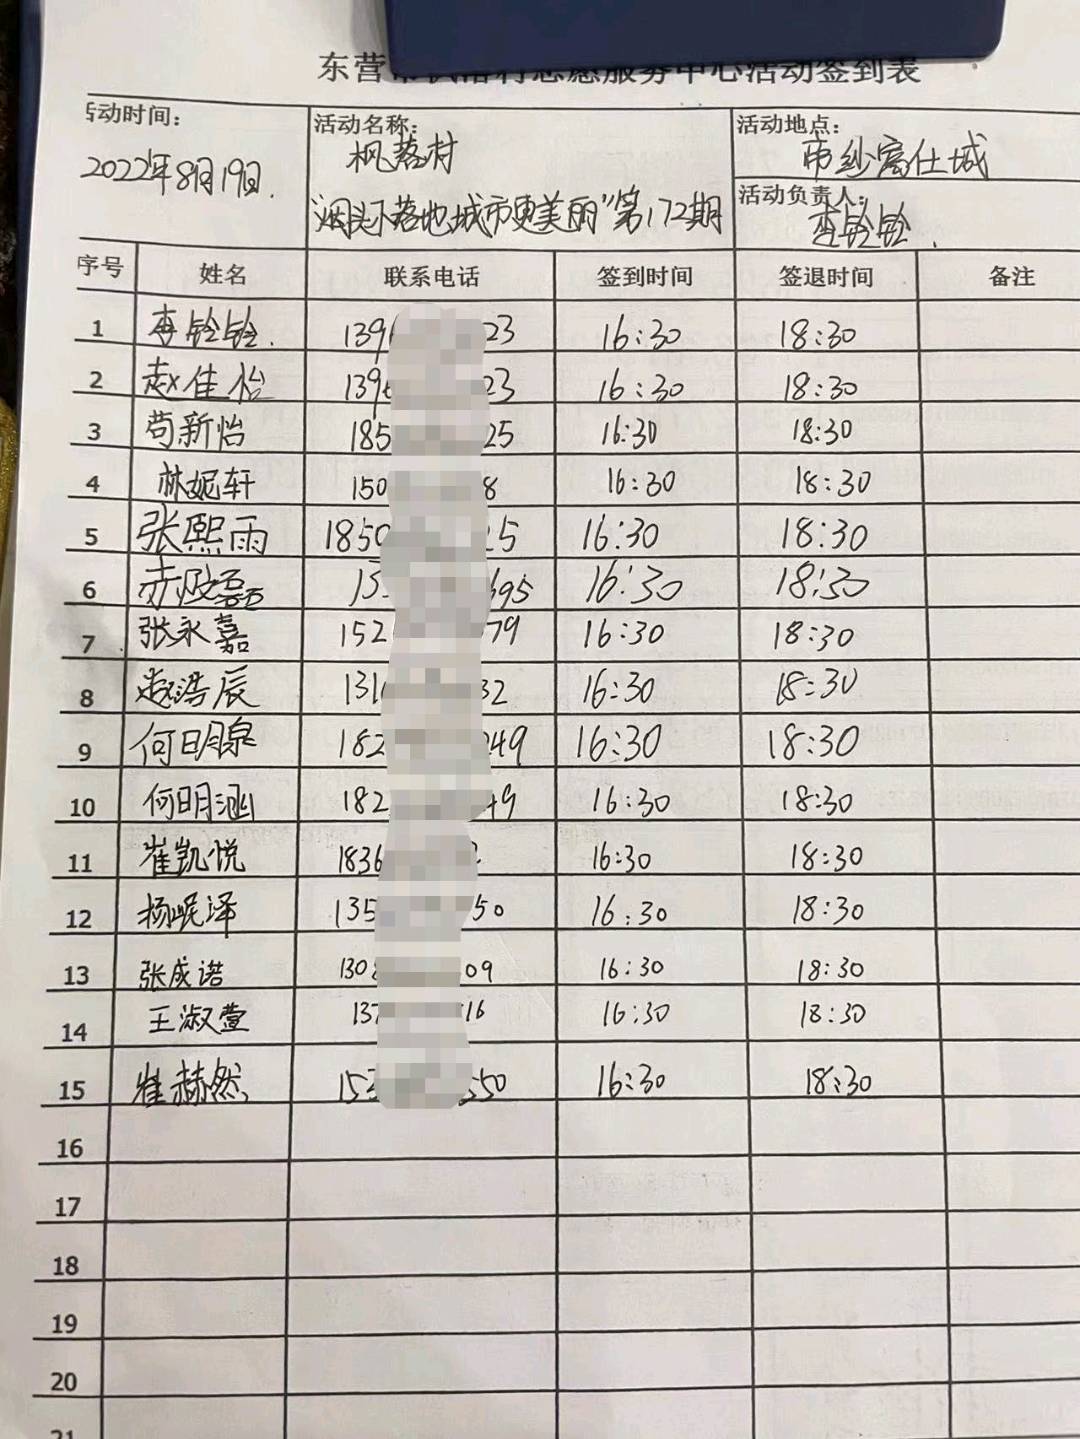 东营市枫落村志愿服务中心活动签到表
活动时间: 活动名称: 活动地点:
2022年8月19日. 枫落村
"烟头不落地城市更美丽"第172期 活动负责人:
李铃铃.
序号 姓名 联系电话 签到时间 签退时间 备注
1 李铃铃. 139 23 16:30 18:30
2 赵佳怡 139 23 16:30 18:30
3 苟新怡 185 25 16:30 18:30
4 林妮轩 150 8 16:30 18:30
5 张熙雨 1850 15 16:30 18:30
6 13 695 16:30 18:30
7 张永嘉 152 79 16:30 18:30
8 赵浩辰 131 32 16:30 18:30
9 何明泉 182 249 16:30 18:30
10 何明涵 182 49 16:30 18:30
11 崔凯悦 1836 16:30 18:30
12 杨岷泽 135 50 16:30 18:30
13 张成诺 130 09 16:30 18:30
14 王淑萱 137 16 16:30 18:30
15 崔赫然 153 550 16:30 18:30
16
17
18
19
20
21